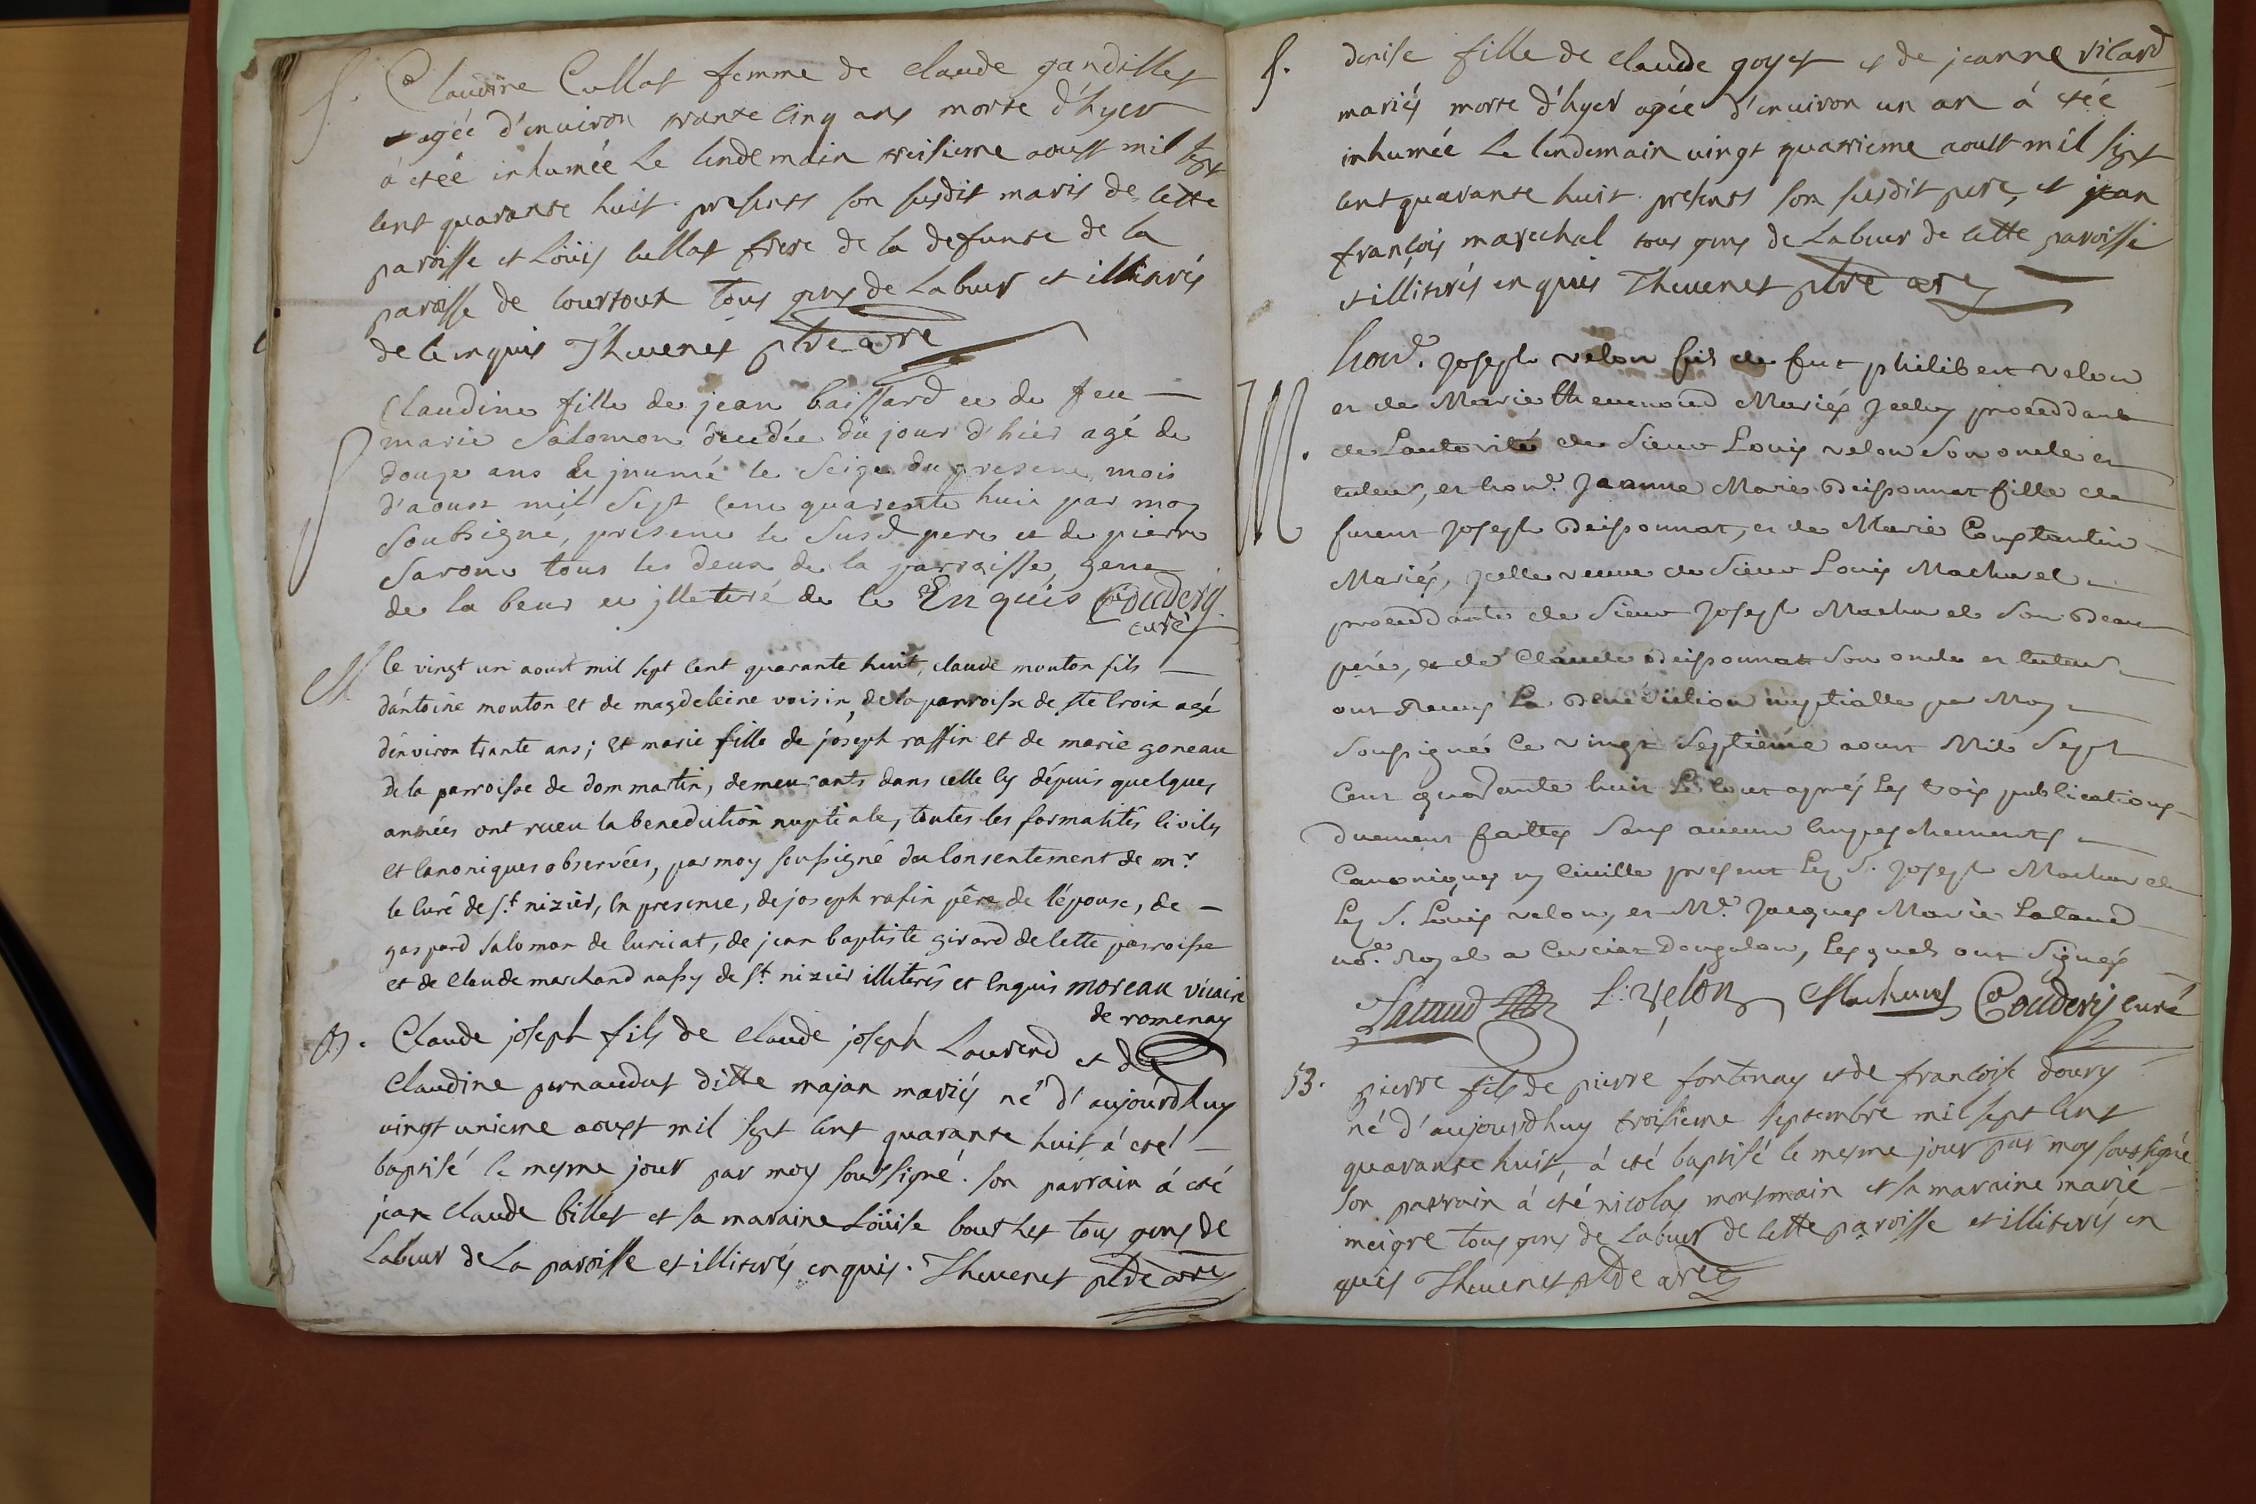 S. Claudine Cullat femme de claude gandillet
agée d'environ trante cinq ans morte d'hyer
á etéé inhumée Le lendemain treisieme aoust mil sept
cent quarante huit presents son susdit maris de cette
paroisse et Loüis cullat frere de la defunte de la
paroisse de courtoux tous gens de Labeur et illiterés
de ce enquis Thevenet ptre
Claudine fille de jean baissard et de feu
marie Salomon du jour d'hier agé de
douze ans inumé le seize du present mois
d'aoust mil Sept Cent quarente huit par moy
Soubsigné, present le Susd pere et de pierre
Sarone tous les deux de la parroisse gene
de la beur et jlleteré de ce Enquis Couderj
curé
M le vingt un aoust mil sept cent quarante huit, claude mouton fils
d'antoine mouton et de magdeleine voisin, de la parroisse de ste croix agé
d'environ trante ans; et marie fille de joseph raffin et de marie goneau
de la parroisse de dommartin, demeurants dans celle cy dépuis quelques
années ont receu la benediction nuptiale, toutes les formalités civiles
et canoniques observées, par moy soussigné du consentement de mr
le curé de St nizier, en presence, de joseph rafin pére de l'épouse, de
gaspard salomon de curicat, de jean baptiste girard de cette parroisse
et de claude marchand de St nizier illiterés et enquis moreau vicaire
de romenay
B. Claude joseph fils de claude joseph Laurend et de
claudine pernaudat ditte majan mariés né d'aujourdhuy
vingt unieme aoust mil sept cent quarante huit á eté
baptisé le mesme jour par moy soussigné. son parrain á eté
jean claude billet et sa maraine Loüise bouthet tous gens de
Labeur de La paroisse et illiterés enquis. Thevenet ptre
S. denise fille de claude goyet et de jeanne vicard
mariés morte d'hyer agée d'environ un an á etéé
inhumée Le lendemain vingt quatrieme aoust mil sept
cent quarante huit presents son susdit pere, et jean
françois marechal tous gens de Labeur de cette paroisse
et illiterés enquis Thevenet ptre
M. hond. Joseph velon fils de fut philibert velon
et de Marie thevenoud Mariés Jceluy proceddant
de Lautorité de Sieur Louis velon Son oncle et
tuteur, et hond. Jeanne Marie Deissonnat fille de
furent Joseph Deissonnat, et de Marie Constantin
Mariés, Jcelle veuve de Sieur Louis Machurel
proceddante de Sieur Joseph Machurel Son Beau
pere, et de Claude Deissonnat Son oncle et tuteur
ont Receus La Benediction nuptialle par Moy
Soussigné Ce vingt Septieme aoust Mil Sept
Cent quarante huit Le tout aprés Les trois publications
duement faittes Sans aucun Empeschements
Canoniques ny Civille present Les S. Joseph Machurel
Les S. Louis velon, et Me. Jacques Marie Lataud
nore. Royal a Cuiciat Dongalon, Lesquels ont Signés
Lataud L: velon Machurel Couderj curé
53. pierre fils de pierre fontenay et de francoise doury
né d'aujourdhuy troisieme septembre mil sept cent
quarante huit, á eté baptisé le mesme jour par moy soussigné
son parrain á eté nicolas montmain et sa maraine marie
meigre tous gens de Labeur de cette paroisse et illiterés en
quis Thevenet ptre